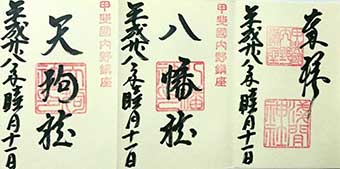 奉拝
浅間神社
平成廿八年睦月十一日
甲斐國内野鎮座
八幡社
平成廿八年睦月十一日
甲斐國内野鎮座
天狗社
平成廿八年睦月十一日